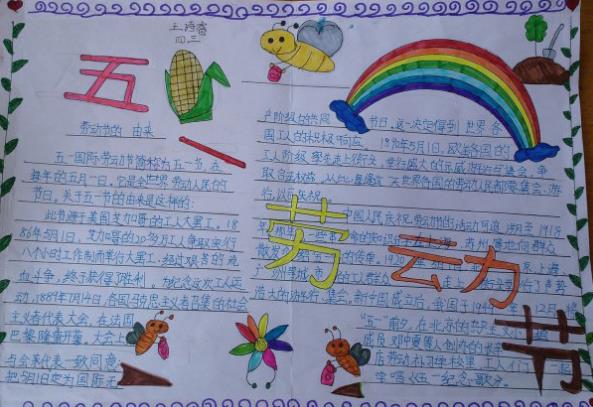 王诗蕾
四三
五
一
劳动节
劳动节的 由来
五一国际劳动节简称为五一节，在
每年的五月一日，它是全世界劳动人民的
节日。关于五一节的由来是这样的：
此节源于美国芝加哥的工人大罢工。18
86年5月1日，芝加哥的20多万工人争取实行
八小时工作制而举行大罢工，经过艰苦的流
血斗争，终于获得了胜利。为纪念这次工人运
动，1889年7月14日，各国马克思主义者召集的社会
主义者代表大会，在法国
巴黎隆重开幕。大会上
与会代表一致同意：
把5月1日定为国际无
产阶级的共同 节日。这一决定得到 世界各
国工人的积极响应。1890年5月1日，欧美各国的
工人阶级率先走上街头，举行盛大的示威游行与集会，争
取合法权益。从此，每逢这 天世界各国的劳动人民都要集会、游
行，以示庆祝。
中国人民庆祝劳动节的活动可追溯至1918
浩大的游行、集会。新中国成立后，我国于1949年12月
“五一”前夕，在北京的共产主义
成员邓中夏等人创办的长辛
店劳动补习学校里，工人们 一起
学唱《五一纪念歌》。